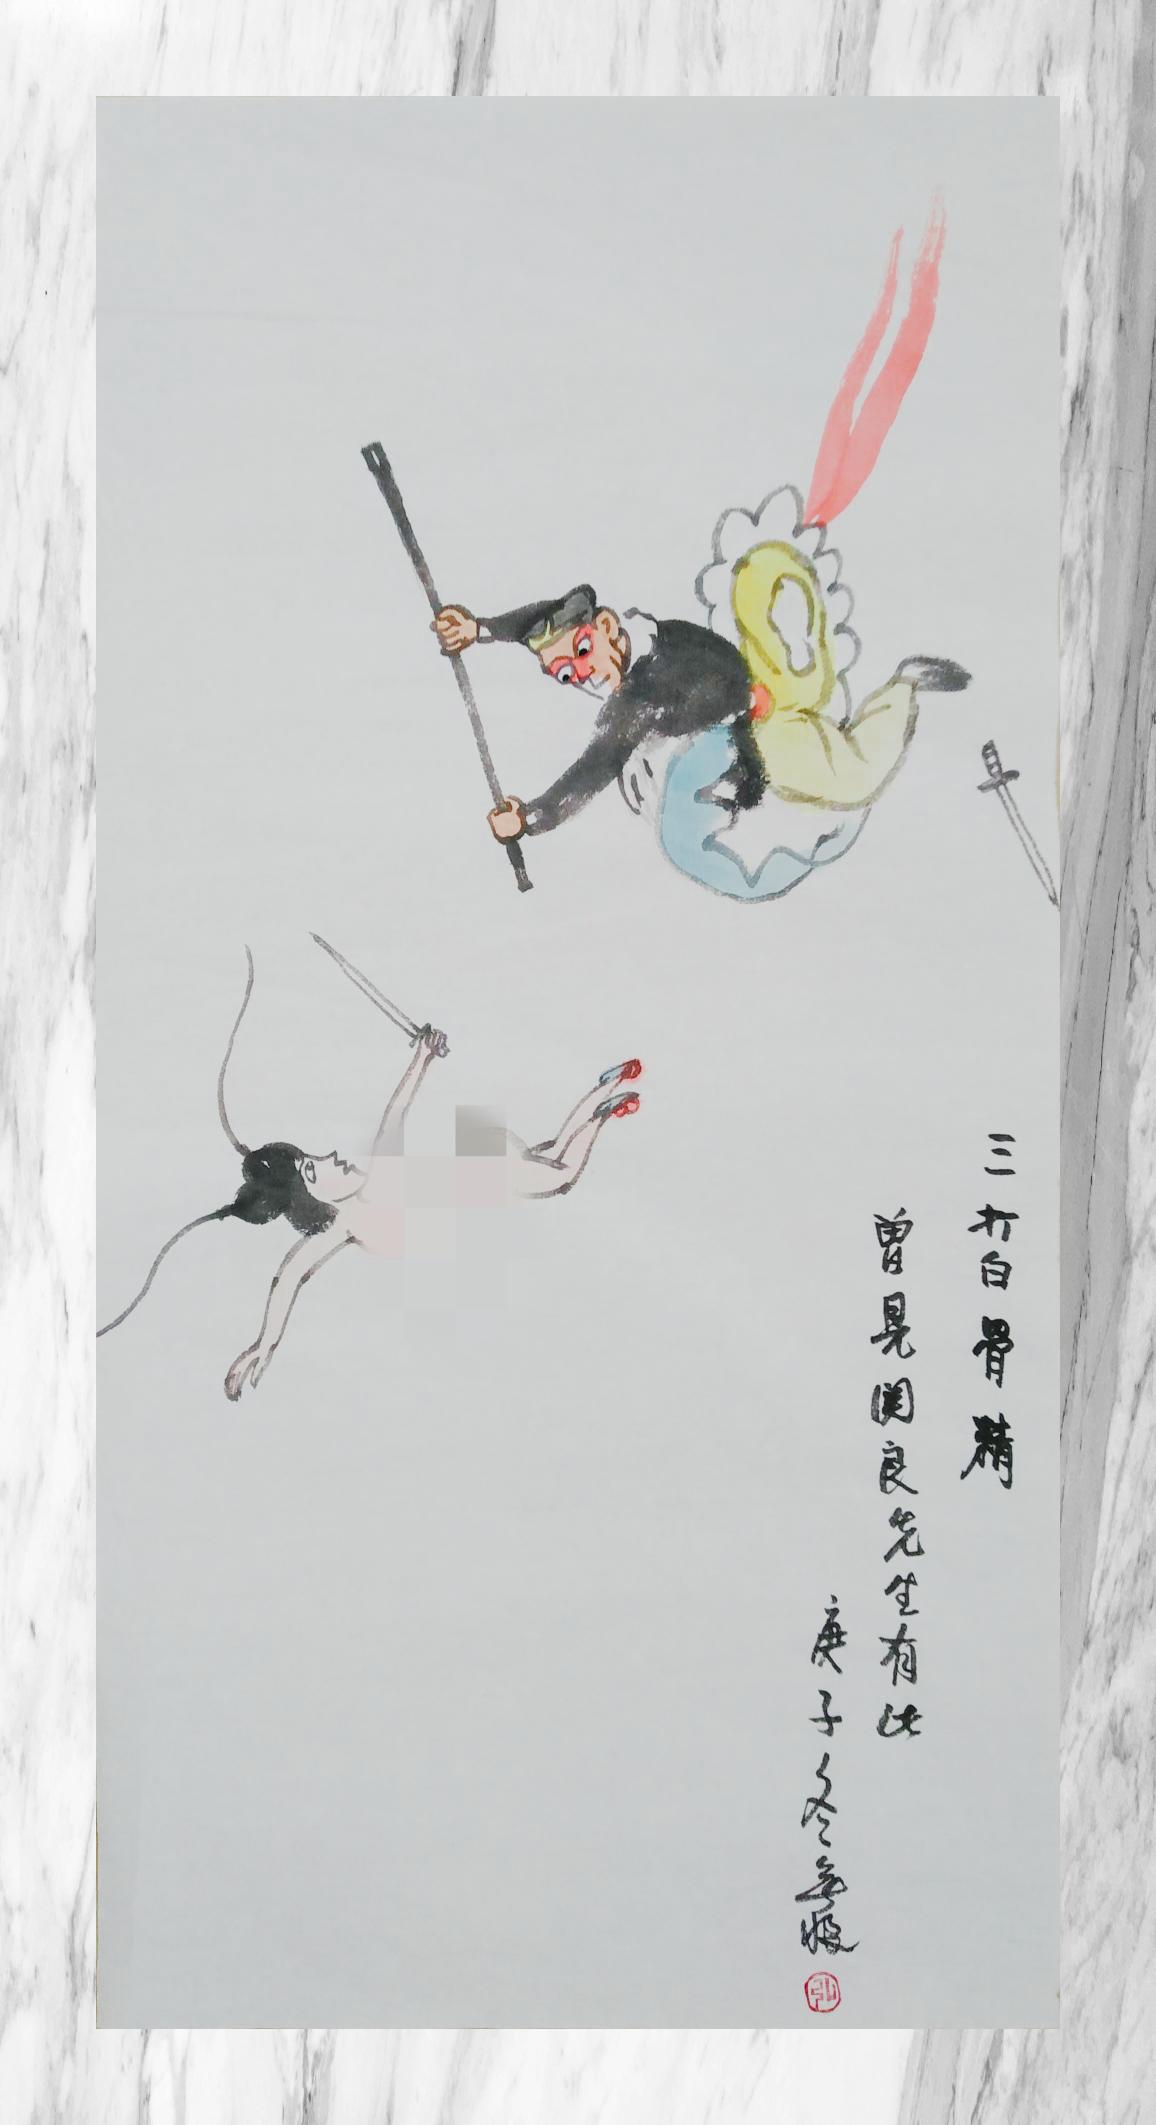 三打白骨精
曾見関良先生有此
庚子冬